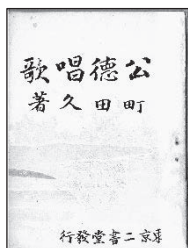 公德唱歌
町田久著
東京二書堂發行